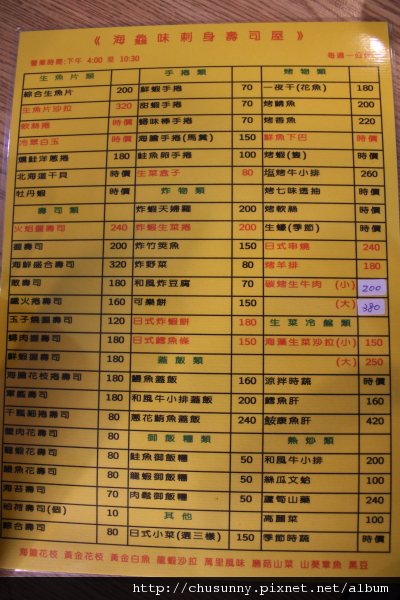 《 海螽味刺身壽司屋 》
營業時間:下午 4:00 至 10:30
每週一公休
生魚片類
綜合生魚片 200
生魚片沙拉 320
軟絲捲 時價
冷翠白玉 時價
燻鮭洋蔥捲 180
北海道干貝 時價
牡丹蝦 時價
壽司類
火焰握壽司 240
握壽司 200
海鮮盛合壽司 320
散壽司 180
鐵火捲壽司 160
玉子燒握壽司 120
蟳肉握壽司 180
鮮蝦握壽司 180
海膽花枝捲壽司 180
軍艦壽司 180
干瓢細捲壽司 80
蟹肉花壽司 80
龍蝦花壽司 80
鰻魚花壽司 80
海苔壽司 70
稻荷壽司(個) 10
綜合壽司 80
手捲類
鮮蝦手捲 70
甜蝦手捲 70
蟳味棒手捲 70
海膽手捲(馬糞) 150
鮭魚卵手捲 100
生菜盒子 80
炸物類
炸蝦天婦羅 200
炸蝦生菜捲 200
炸竹筴魚 150
炸野菜 80
和風炸豆腐 70
可樂餅 150
日式炸蝦餅 180
日式鱈魚條 150
蓋飯類
鰻魚蓋飯 160
和風牛小排蓋飯 200
蔥花鮪魚蓋飯 200
御飯糰類
鮭魚御飯糰 50
龍蝦御飯糰 50
肉鬆御飯糰 50
其他
日式小菜(選三樣) 150
烤物類
一夜干(花魚) 180
烤鯖魚 200
烤香魚 220
鮮魚下巴 時價
烤蝦(隻) 時價
塩烤牛小排 260
烤七味透抽 時價
烤軟絲 時價
生蠔(季節) 時價
日式串燒 240
烤羊排 180
碳烤生牛肉 (小) 200
(大) 380
生菜冷盤類
海藻生菜沙拉(小) 150
(大) 250
涼拌時蔬 時價
鱈魚肝 160
鮟康魚肝 420
熱炒類
和風牛小排 200
絲瓜文蛤 100
蘆筍山藥 240
高麗菜 100
季節時蔬 時價
海膽花枝 黃金花枝 黃金白魚 龍蝦沙拉 萬里風味 蘑菇山菜 山葵章魚 黑豆
http://chusunny.pixnet.net/album